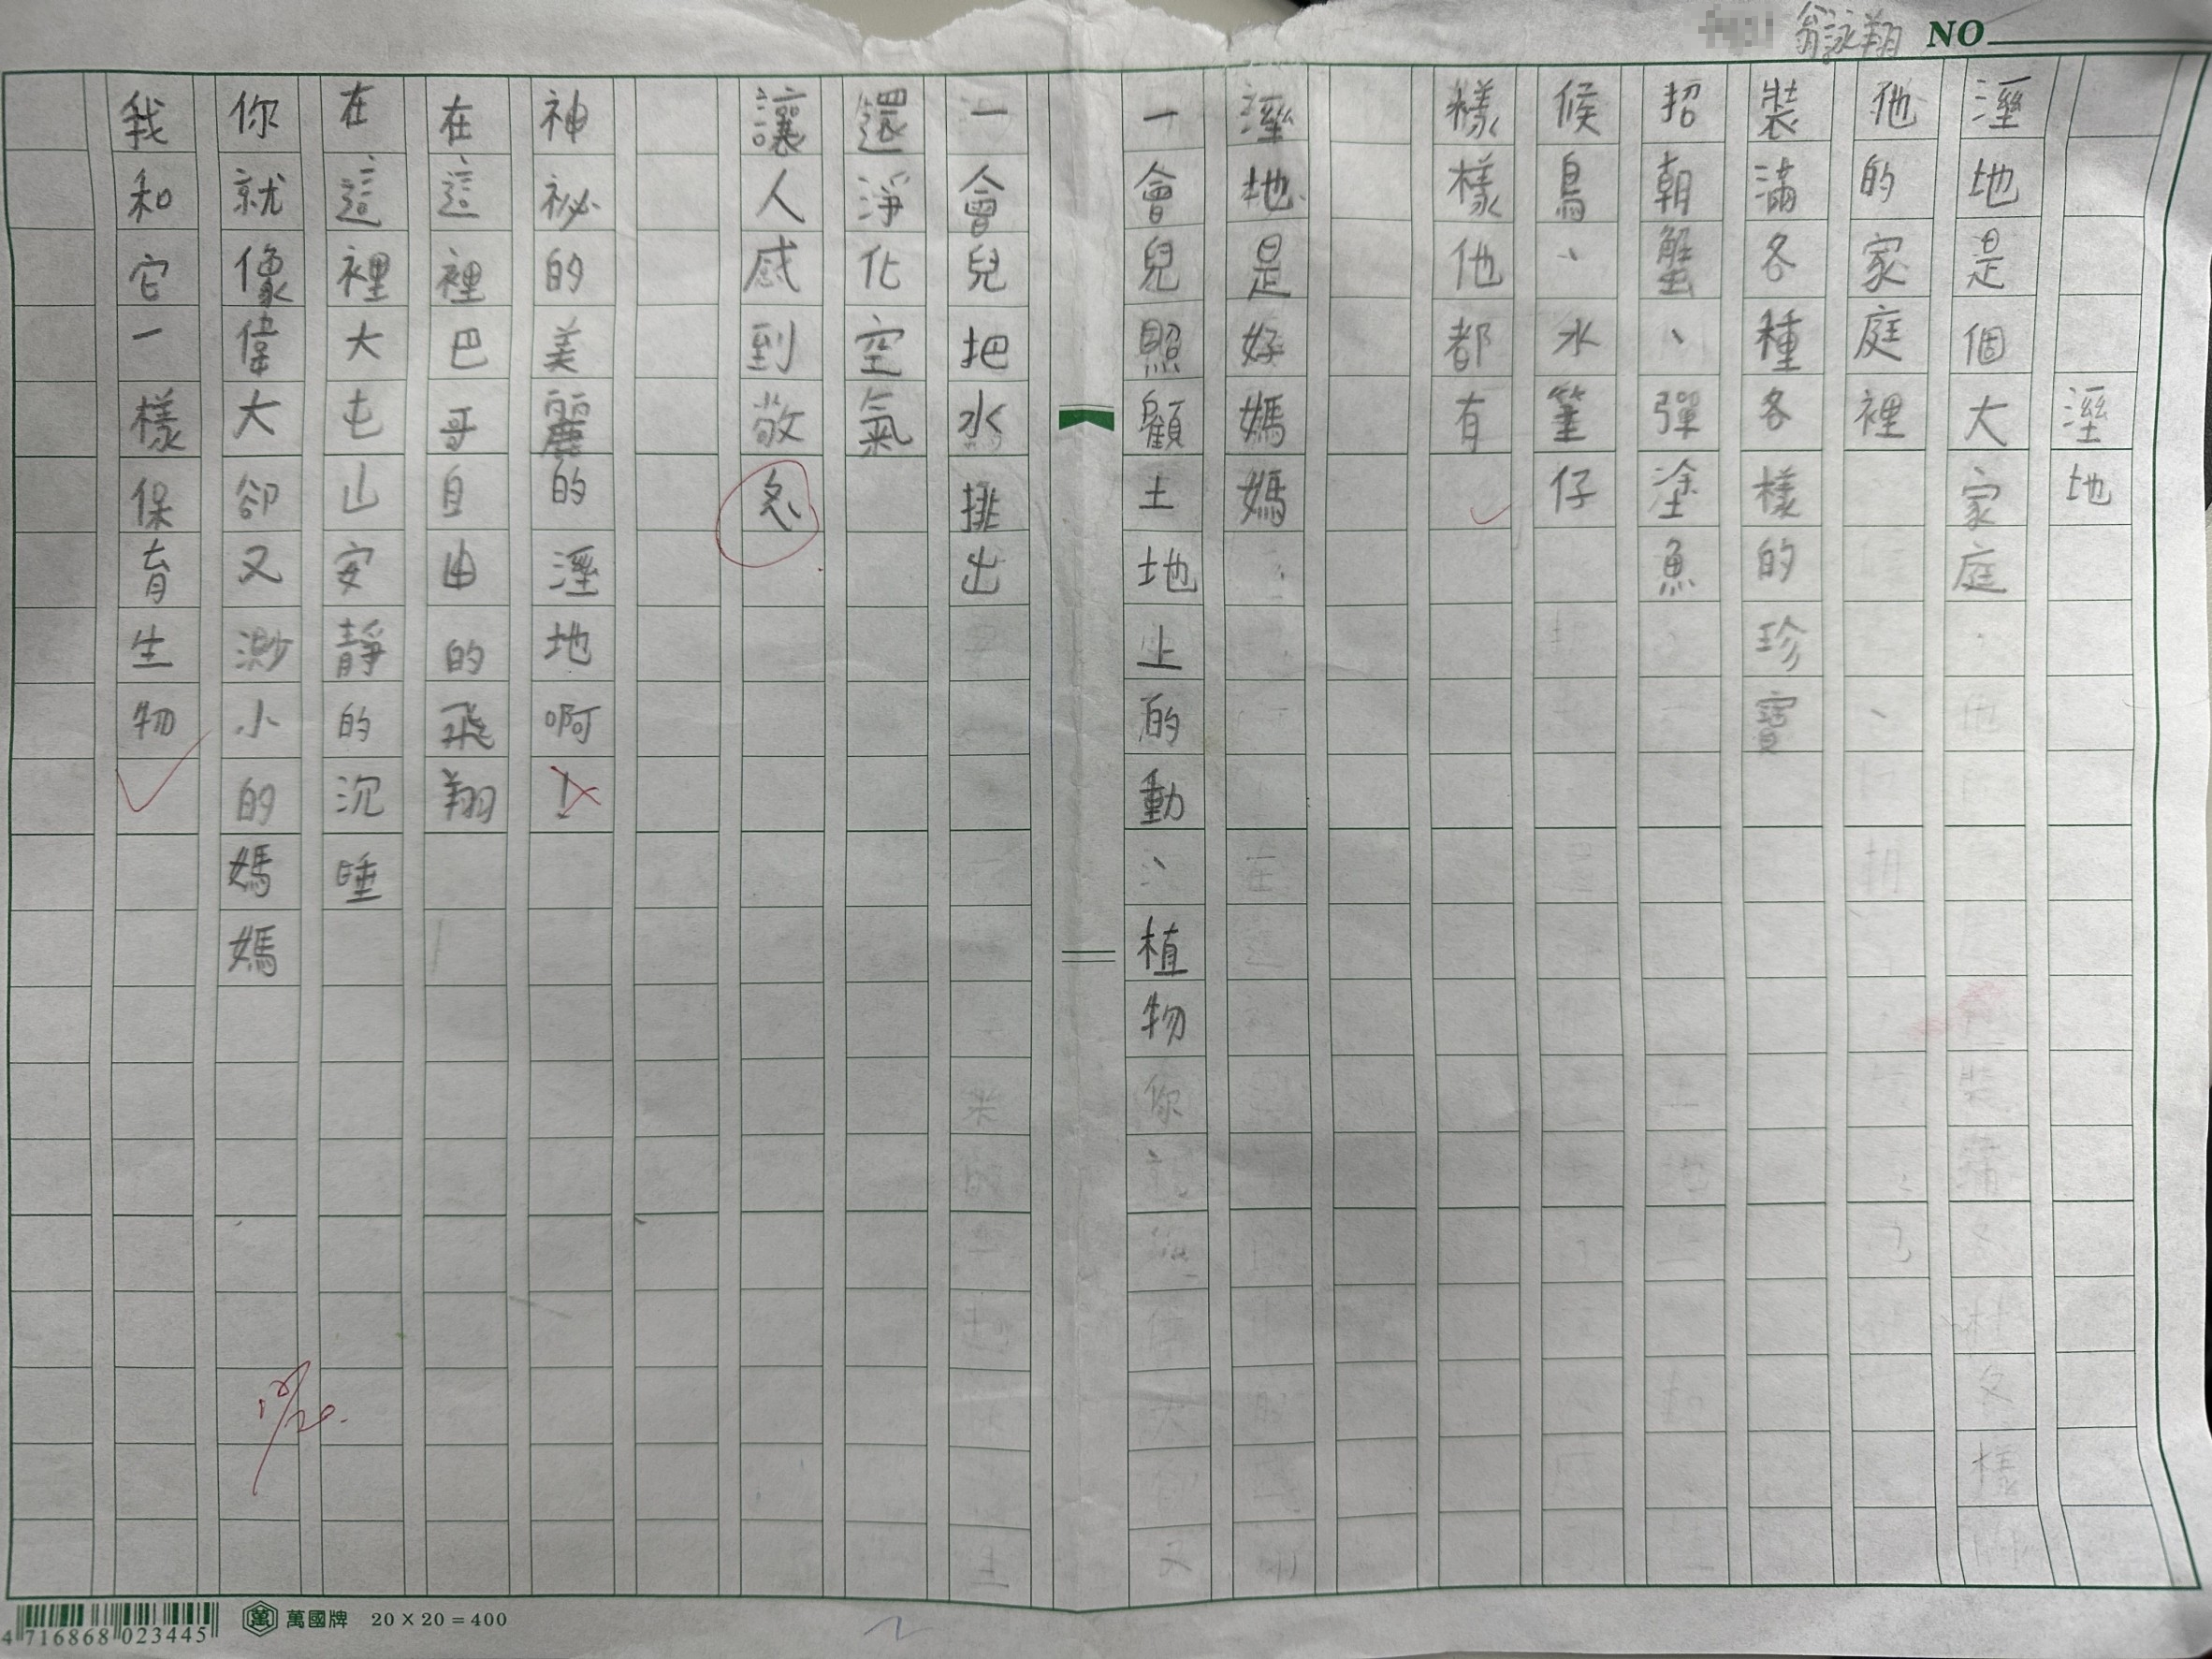 翁詠翔 NO
溼地
溼地是個大家庭
他的家庭裡
裝滿各種各樣的珍寶
招朝蟹、彈塗魚
候鳥、水筆仔
樣樣他都有
溼地是好媽媽
一會兒照顧土地上的動、植物
一會兒把水排出
還淨化空氣
讓人感到敬
神祕的美麗的溼地啊!
在這裡巴哥自由的飛翔
在這裡大屯山安靜的沉睡
你就像偉大卻又渺小的媽媽
我和它一樣保育生物
4 716868 023445
萬 萬國牌 20×20=400